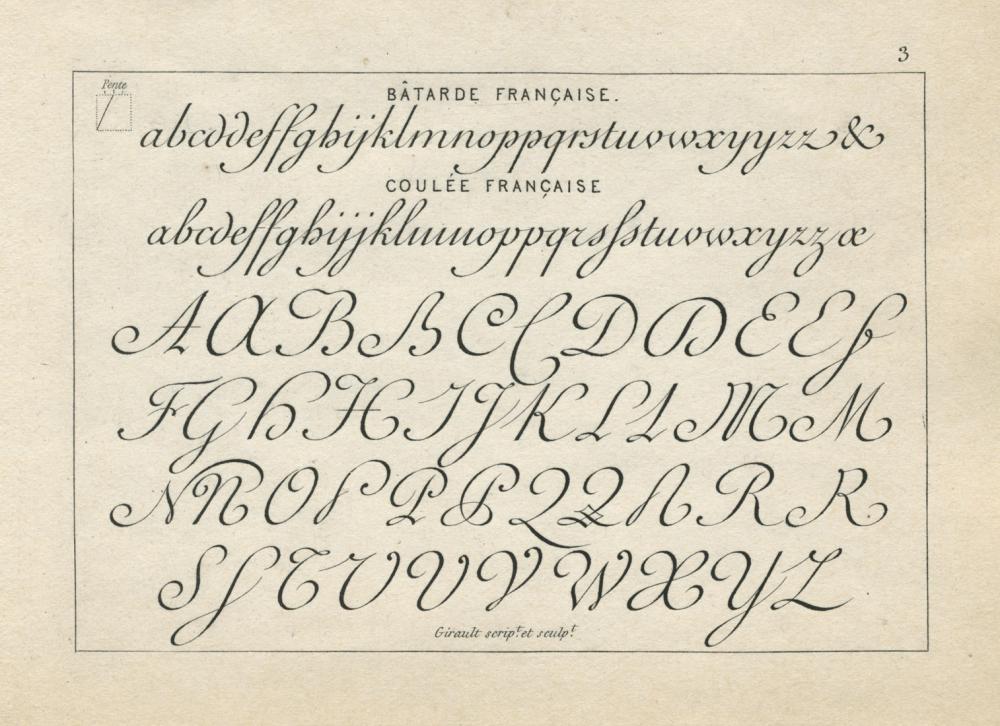 3
Pente
BÂTARDE FRANÇAISE.
abcddeffghijklmnoppqrstuvwxyyzz&
COULÉE FRANÇAISE
abcdeffghijjklmnoppqrsſstuvwxyzzæ
AABBCCDDEEF
FGHHIJKLLMM
NNOPPPQQRRR
SSTUUVVWXYZ
Girault scrip.t et sculp.t